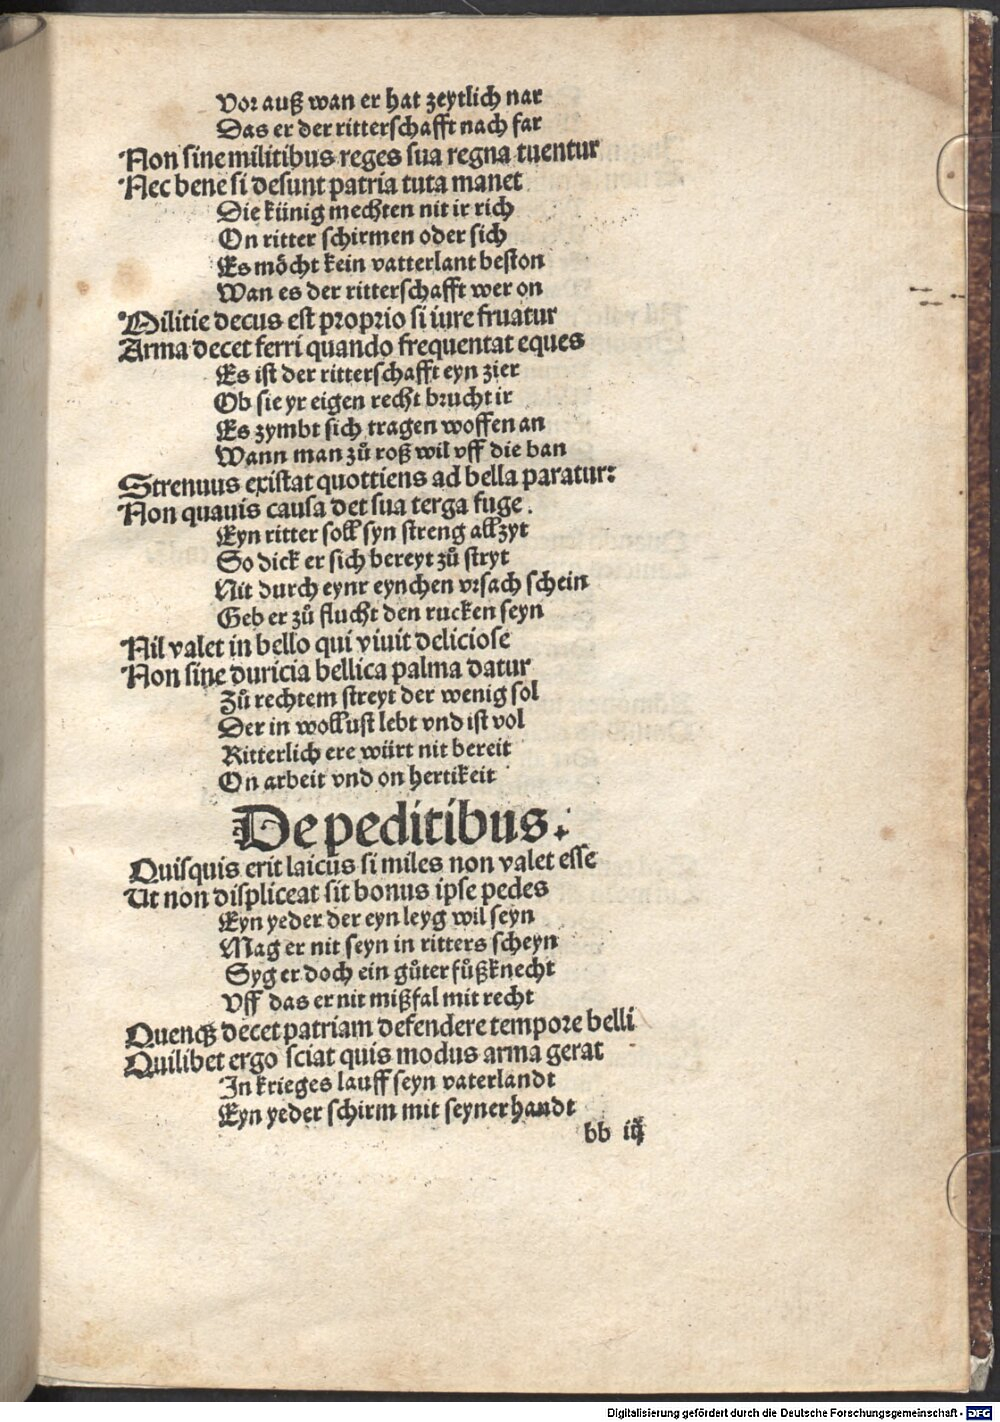 Vor auß wan er hat zeytlich nar
Das er der ritterschafft nach far
Non sine militibus reges sua regna tuentur
Nec bene si desunt patria tuta manet
Die künig mechten nit ir rich
On ritter schirmen oder sich
Es möcht kein vatterlant beston
Wan es der ritterschafft wer on
Militie decus est proprio si iure fruatur
Arma decet ferri quando frequentat eques
Es ist der ritterschafft eyn zier
Ob sie yr eigen recht brucht ir
Es zymbt sich tragen woffen an
Wann man zů roß wil vff die ban
Strenuus existat quottiens ad bella paratur:
Non quauis causa det sua terga fuge.
Eyn ritter soll syn streng allzyt
So dick er sich bereyt zů stryt
Nit durch eynr eynchen vrsach schein
Geb er zů flucht den rucken seyn
Nil valet in bello qui viuit deliciose
Non sine duricia bellica palma datur
Zů rechtem streyt der wenig sol
Der in wollust lebt vnd ist vol
Ritterlich ere würt nit bereit
On arbeit vnd on hertikeit
De peditibus.
Quisquis erit laicus si miles non valet esse
Ut non displiceat sit bonus ipse pedes
Eyn yeder der eyn leyg wil seyn
Mag er nit seyn in ritters scheyn
Syg er doch ein gůter fůßknecht
Vff das er nit mißfal mit recht
Quenqꝫ decet patriam defendere tempore belli
Quilibet ergo sciat quis modus arma gerat
In krieges lauff seyn vaterlandt
Eyn yeder schirm mit seyner handt
bb iij
Digitalisierung gefördert durch die Deutsche Forschungsgemeinschaft - DFG